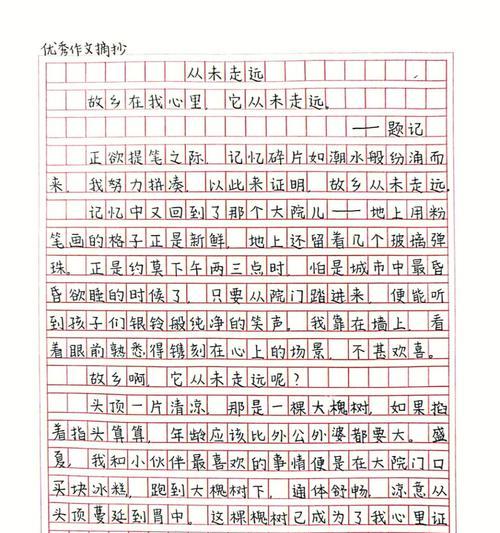 优秀作文摘抄
从未走远
故乡在我心里，它从未走远。
——题记
正欲提笔之际，记忆碎片如潮水般纷涌而
来，我努力拼凑，以此来证明，故乡从未走远。
记忆中又回到了那个大院儿——地上用粉
笔画的格子正是新鲜，地上还留着几个玻璃弹
珠。正是约莫下午两三点时，怕是城市中最昏
昏欲睡的时候了，只要从院门踏进来，便能听
到孩子们银铃般纯净的笑声。我靠在墙上，看
着眼前熟悉得镌刻在心上的场景，不甚欢喜。
故乡啊，它从未走远呢？
头顶一片清凉，那是一棵大槐树，如果掐
着指头算算，年龄应该比外公外婆都要大。盛
夏，我和小伙伴最喜欢的事情便是在大院门口
买块冰糕，跑到大槐树下，通体舒畅，凉意从
头顶蔓延到胃中。这棵槐树已成为了我心里证